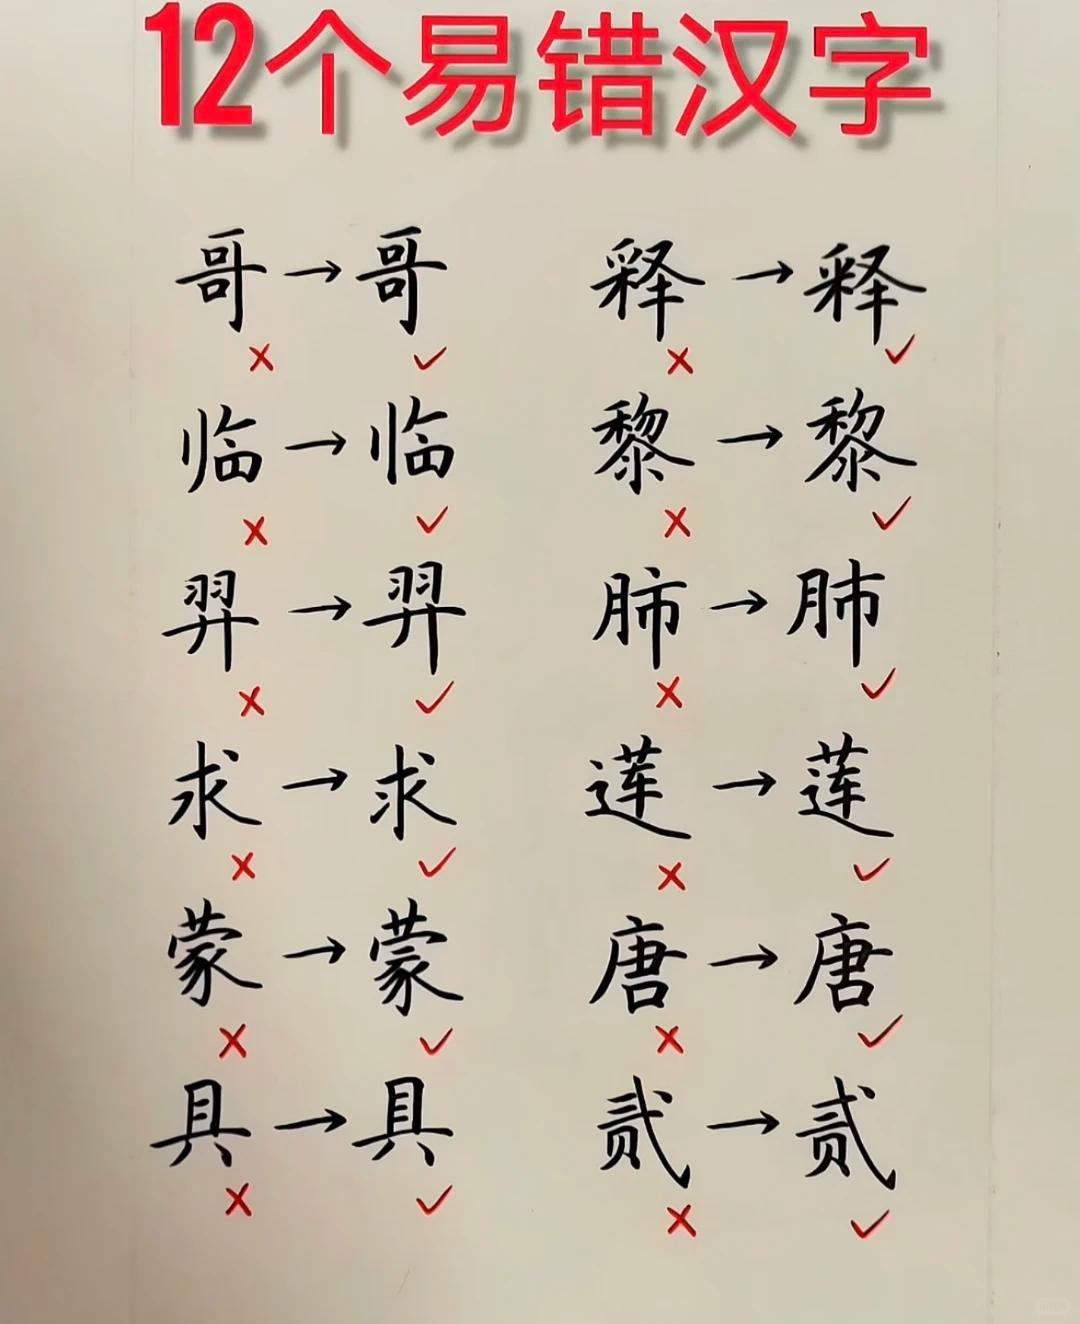 12个易错汉字
哥→哥 释→释
× ✓ × ✓
临→临 黎→黎
× ✓ × ✓
羿→羿 肺→肺
× ✓ × ✓
求→求 莲→莲
× ✓ × ✓
蒙→蒙 唐→唐
× ✓ × ✓
具→具 贰→贰
× ✓ × ✓